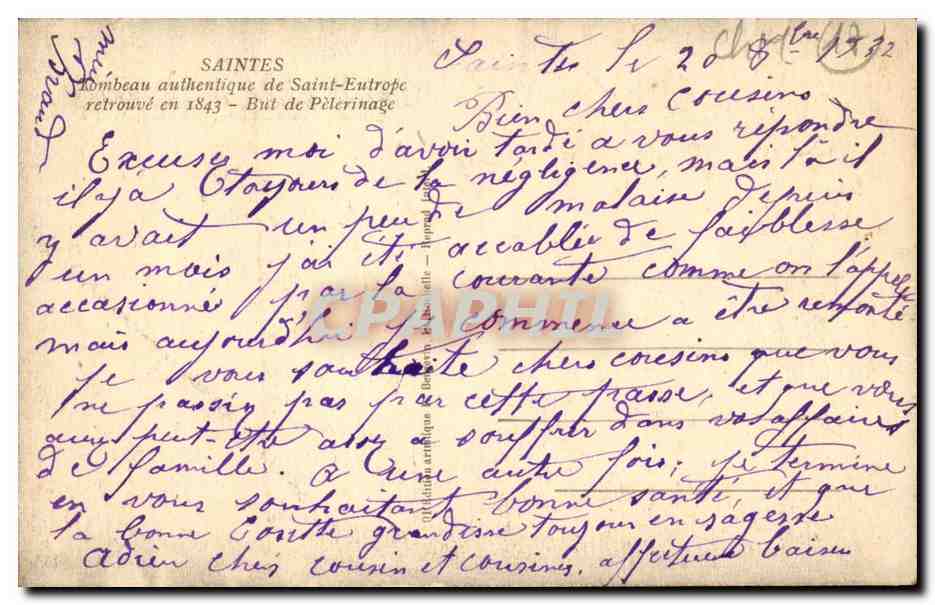 SAINTES
Tombeau authentique de Saint-Eutrope
retrouvé en 1843 - But de Pèlerinage
Saintes le 20 8bre 1932
Bien chers cousins
Excuses moi d'avoir tardé a vous répondre
il y a toujours de la négligence, mais là il
y avait un peu de malaise depuis
un mois j'ai été accablée de faiblesse
accasionné par la courante comme on l'appelle
mais aujourd'hui je commence a être remonté
je vous souhaite chers cousins que vous
ne passiez pas par cette passe, et que vous
aux peut-etre assez a souffrir dans vos affaires
de famille. a une autre fois; je termine
en vous souhaitant bonne santé, et que
la bonne grandisse toujour en sagesse
Adieu chers cousin et cousines. baiser
CPARHTI